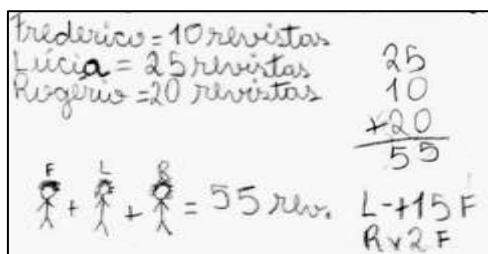 Frederico = 10 revistas
Lúcia = 25 revistas
Rogério = 20 revistas
25
10
+20
55
F L R
+ + = 55 rev.
L → +15 F
R x 2 F